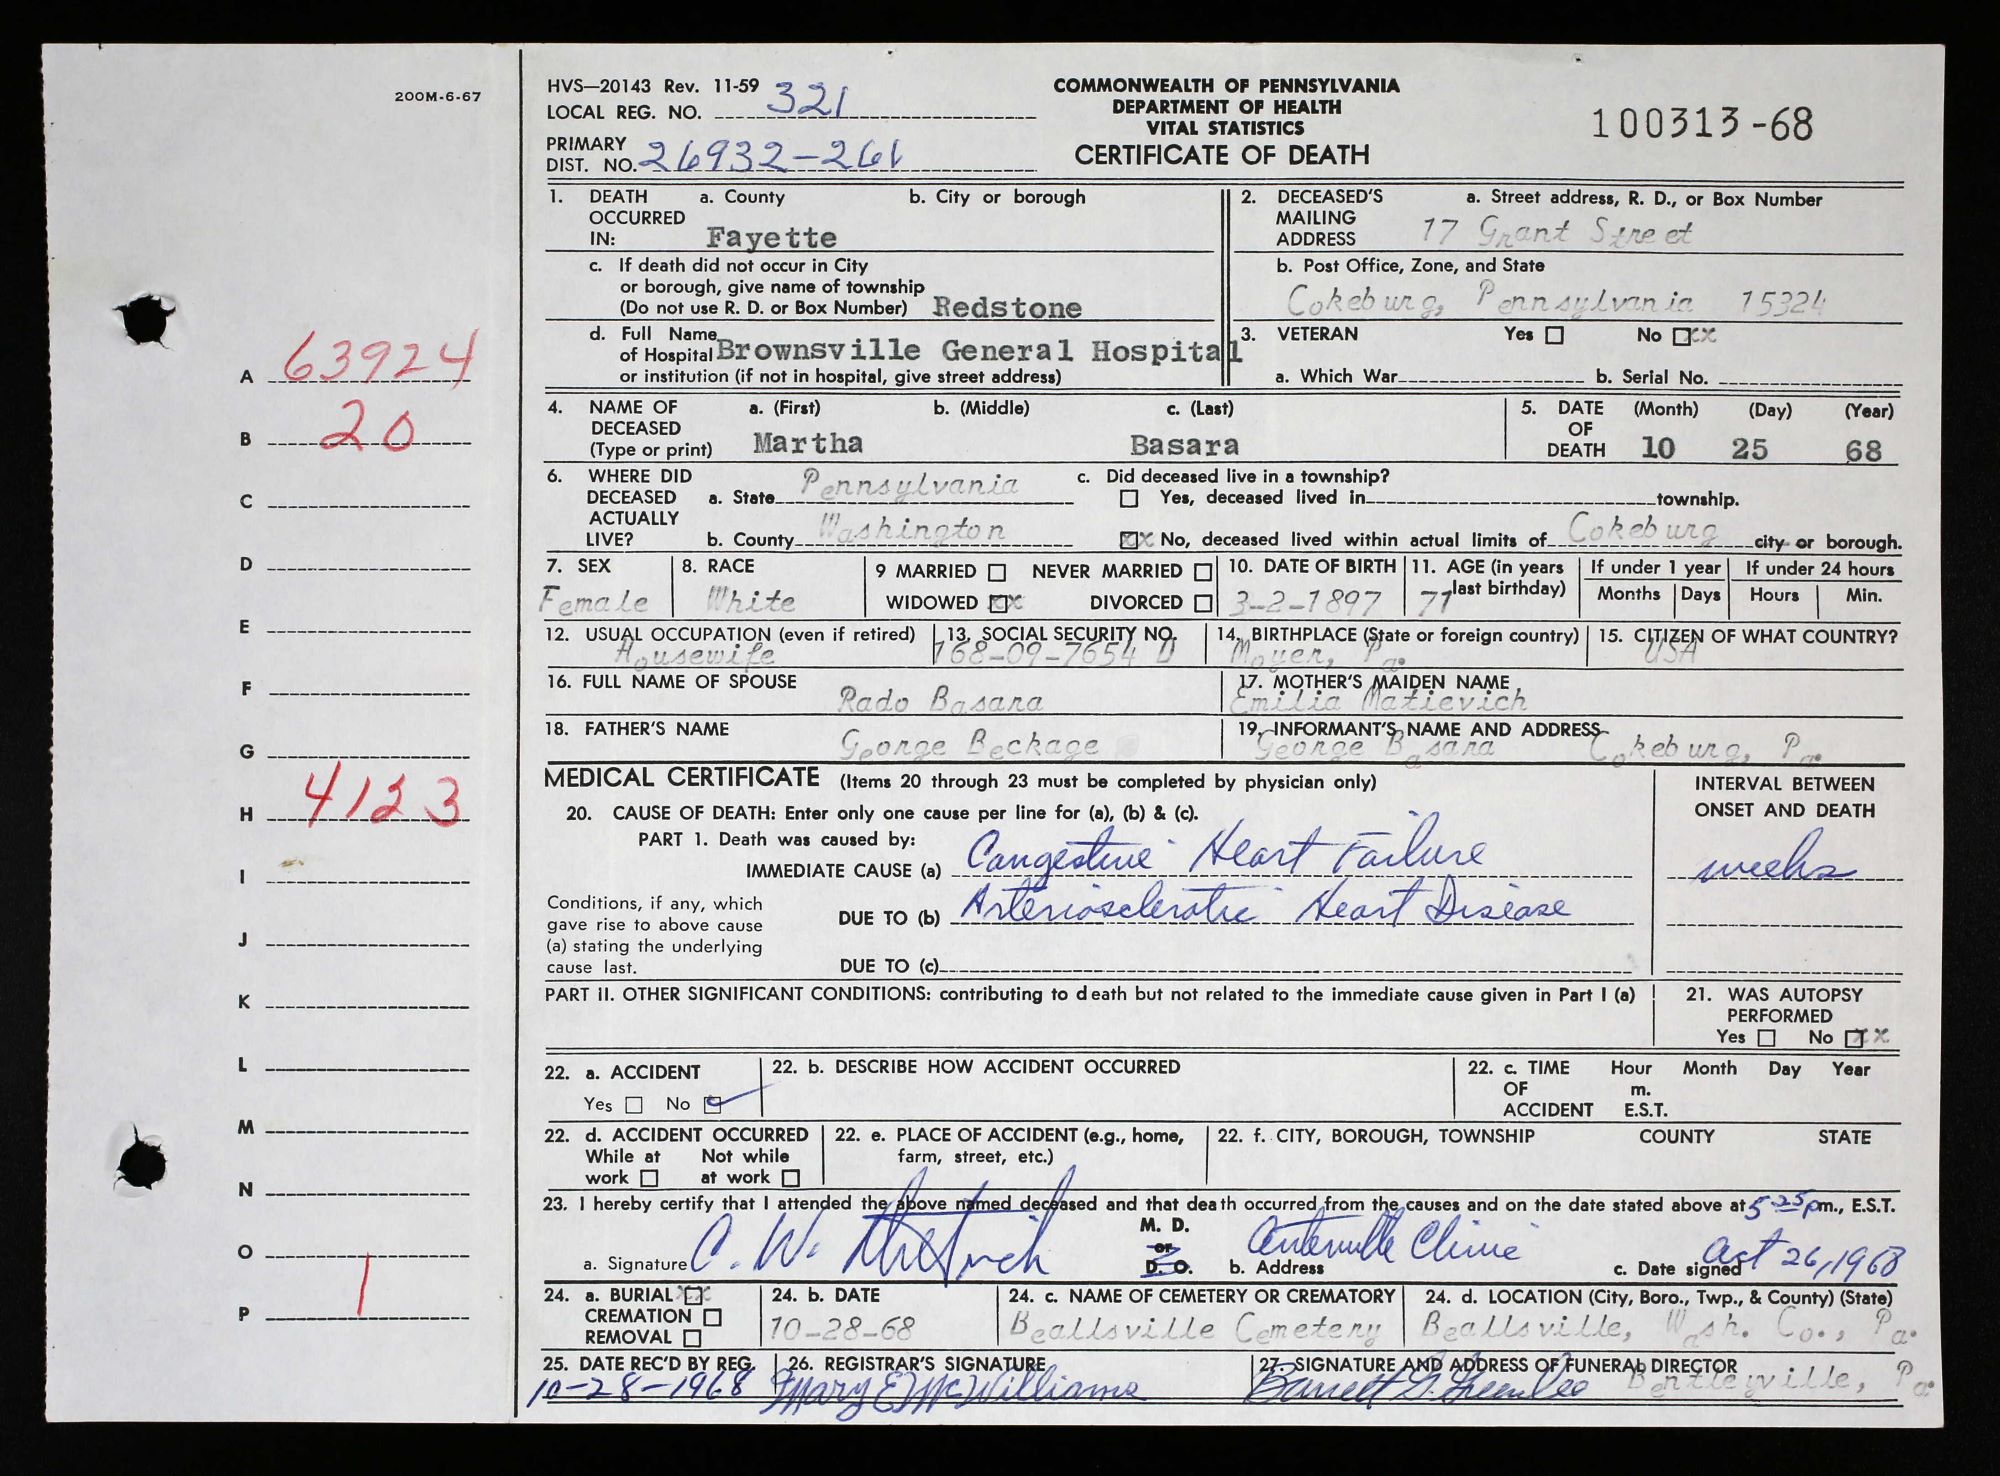 200M-6-67
HVS—20143 Rev. 11-59
LOCAL REG. NO. 321
PRIMARY
DIST. NO. 26932-261
COMMONWEALTH OF PENNSYLVANIA
DEPARTMENT OF HEALTH
VITAL STATISTICS
CERTIFICATE OF DEATH
100313-68
1. DEATH OCCURRED IN: a. County b. City or borough
Fayette
c. If death did not occur in City
or borough, give name of township
(Do not use R. D. or Box Number) Redstone
d. Full Name
of Hospital Brownsville General Hospital
or institution (if not in hospital, give street address)
2. DECEASED'S MAILING ADDRESS a. Street address, R. D., or Box Number
17 Grant Street
b. Post Office, Zone, and State
Cokeburg, Pennsylvania 15324
3. VETERAN Yes No xx
a. Which War b. Serial No.
4. NAME OF DECEASED (Type or print) a. (First) b. (Middle) c. (Last)
Martha Basara
5. DATE OF DEATH (Month) (Day) (Year)
10 25 68
6. WHERE DID DECEASED ACTUALLY LIVE?
a. State Pennsylvania
b. County Washington
c. Did deceased live in a township?
Yes, deceased lived in township.
xx No, deceased lived within actual limits of Cokeburg city or borough.
7. SEX
Female
8. RACE
White
9 MARRIED NEVER MARRIED
WIDOWED xx DIVORCED
10. DATE OF BIRTH
3-2-1897
11. AGE (in years last birthday)
71
If under 1 year
Months Days
If under 24 hours
Hours Min.
12. USUAL OCCUPATION (even if retired)
Housewife
13. SOCIAL SECURITY NO.
168-09-7654 D
14. BIRTHPLACE (State or foreign country)
Moyer, Pa.
15. CITIZEN OF WHAT COUNTRY?
USA
16. FULL NAME OF SPOUSE
Rado Basara
17. MOTHER'S MAIDEN NAME
Emilia Matievich
18. FATHER'S NAME
George Beckage
19. INFORMANT'S NAME AND ADDRESS
George Basara Cokeburg, Pa.
MEDICAL CERTIFICATE (Items 20 through 23 must be completed by physician only)
20. CAUSE OF DEATH: Enter only one cause per line for (a), (b) & (c).
PART 1. Death was caused by:
IMMEDIATE CAUSE (a) Congestive Heart Failure
Conditions, if any, which
gave rise to above cause
(a) stating the underlying
cause last.
DUE TO (b) Arteriosclerotic Heart Disease
DUE TO (c)
INTERVAL BETWEEN
ONSET AND DEATH
weeks
PART II. OTHER SIGNIFICANT CONDITIONS: contributing to death but not related to the immediate cause given in Part I (a)
21. WAS AUTOPSY
PERFORMED
Yes No xx
22. a. ACCIDENT
Yes No
22. b. DESCRIBE HOW ACCIDENT OCCURRED
22. c. TIME OF ACCIDENT Hour Month Day Year
m.
E.S.T.
22. d. ACCIDENT OCCURRED
While at work Not while at work
22. e. PLACE OF ACCIDENT (e.g., home,
farm, street, etc.)
22. f. CITY, BOROUGH, TOWNSHIP COUNTY STATE
23. I hereby certify that I attended the above named deceased and that death occurred from the causes and on the date stated above at 5 25 pm., E.S.T.
a. Signature C. W.
M. D.
or
D. O.
b. Address Centerville Clinic
c. Date signed Oct 26, 1968
24. a. BURIAL xx
CREMATION
REMOVAL
24. b. DATE
10-28-68
24. c. NAME OF CEMETERY OR CREMATORY
Beallsville Cemetery
24. d. LOCATION (City, Boro., Twp., & County) (State)
Beallsville, Wash. Co., Pa.
25. DATE REC'D BY REG.
10-28-1968
26. REGISTRAR'S SIGNATURE
Mary E McWilliams
27. SIGNATURE AND ADDRESS OF FUNERAL DIRECTOR
Bentleyville, Pa.
A 63924
B 20
C
D
E
F
G
H 4123
I
J
K
L
M
N
O
P 1